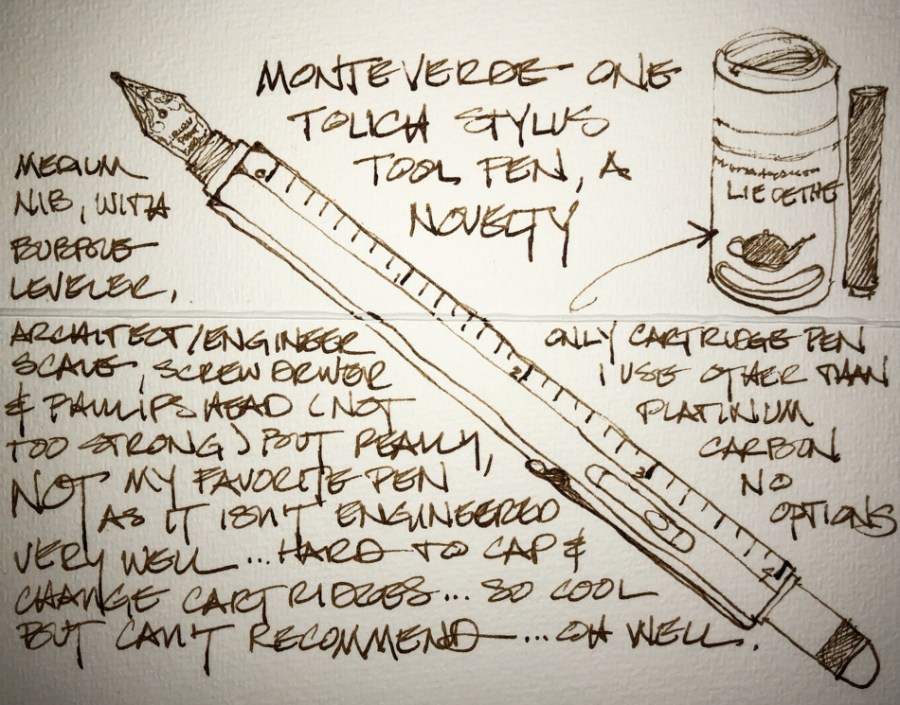 MONTEVERDE ONE
TOUCH STYLUS
TOOL PEN, A
NOVELTY
MEDIUM
NIB, WITH
BUBBLE
LEVELER,
ARCHITECT/ENGINEER
SCALE, SCREW DRIVER
& PHILLIPS HEAD (NOT
TOO STRONG) BUT REALLY,
NOT MY FAVORITE PEN
AS IT ISN'T ENGINEERED
VERY WELL ... HARD TO CAP &
CHANGE CARTRIDGES ... SO COOL
BUT CAN'T RECOMMEND ... OH WELL.
LIE DE THÉ
ONLY CARTRIDGE PEN
I USE OTHER THAN
PLATINUM
CARBON
NO
OPTIONS
2
3
4